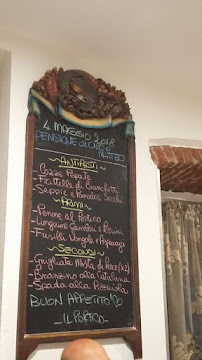 4 MAGGIO 2018
PENSIONE DI CARLO
MATTEO
ANTIPASTI
- Cozze Pepate
- Frittelle di Bianchetti
- Seppie e Pomodori Secchi
PRIMI
- Penne al Portico
- Linguine Gamberi e
- Fusilli Vongole e Asparagi
SECONDI
- Grigliata Mista di Pesce
- Branzino alla Catalana
- Spada alla Pizzaiola
BUON APPETITO DA
IL PORTICO